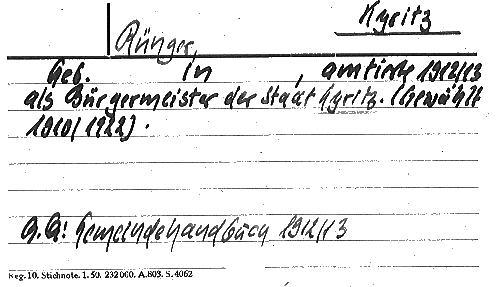 Kyritz
Rünger,
Geb. in , amtierte 1912/13
als Bürgermeister der Stadt Kyritz. (Gewählt
1910/1922).
G.A: Gemeindehandbuch 1912/13
Reg. 10. Stichnote. 1. 50. 232000. A.803. S. 4062